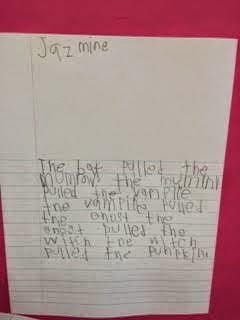 Jazmine
The bat pulled the
mummy the mummy
pulled the vampire
the vampire pulled
the ghost the
ghost pulled the
witch the witch
pulled the pumpkin